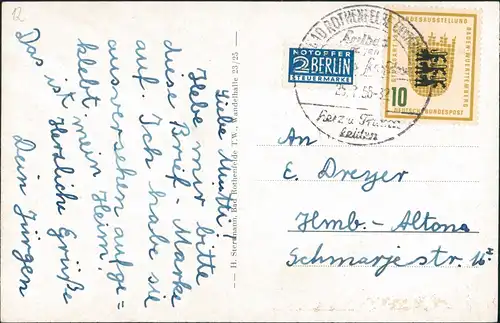 12
Liebe Mutti,
Hebe mir bitte
diese Brief-Marke
auf. Ich habe sie
ausversehen aufge=
klebt mein Heim.
Das ist Herzliche Grüße
Dein Jürgen
H. Sterzmann, Bad Rothenfelde T.W., Wandelhalle 23/25
NOTOPFER
2 BERLIN
STEUERMARKE
BAD ROTHENFELDE
Herz u.
BADEN-WÜRTTEMBERG
10
DEUTSCHE BUNDESPOST
An
E. Dreyer
Hmb.-Altona
Schmarjestr.